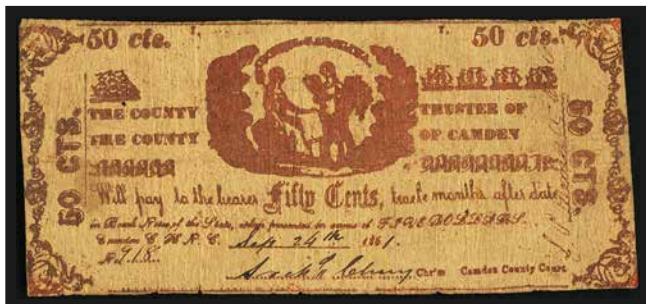 50 cts.
50 cts.
50 CTS.
50 CTS.
THE COUNTY
TRUSTEE OF
THE COUNTY
OF CAMDEN
Will pay to the bearer Fifty Cents, months after date
in Bank Notes of the State, when presented in sums of FIVE DOLLARS.
Camden C. H. N. C. Sep. 24th 1861.
Chr'm Camden County Court